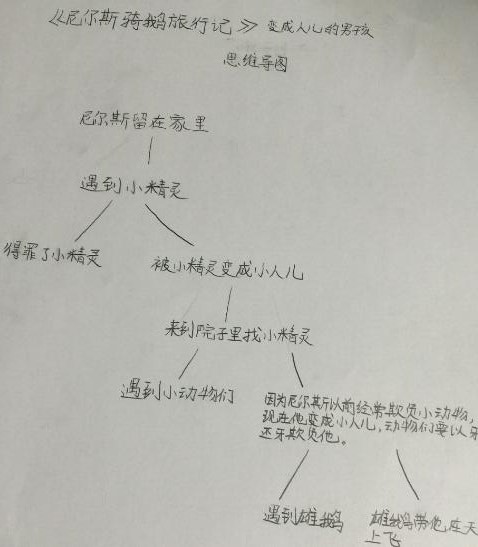 《尼尔斯骑鹅旅行记》变成人儿的男孩
思维导图
尼尔斯留在家里
遇到小精灵
得罪了小精灵
被小精灵变成小人儿
来到院子里找小精灵
遇到小动物们
因为尼尔斯以前经常欺负小动物,
现在他变成小人儿,动物们要以牙
还牙欺负他。
遇到雄鹅
雄鹅带他在天
上飞